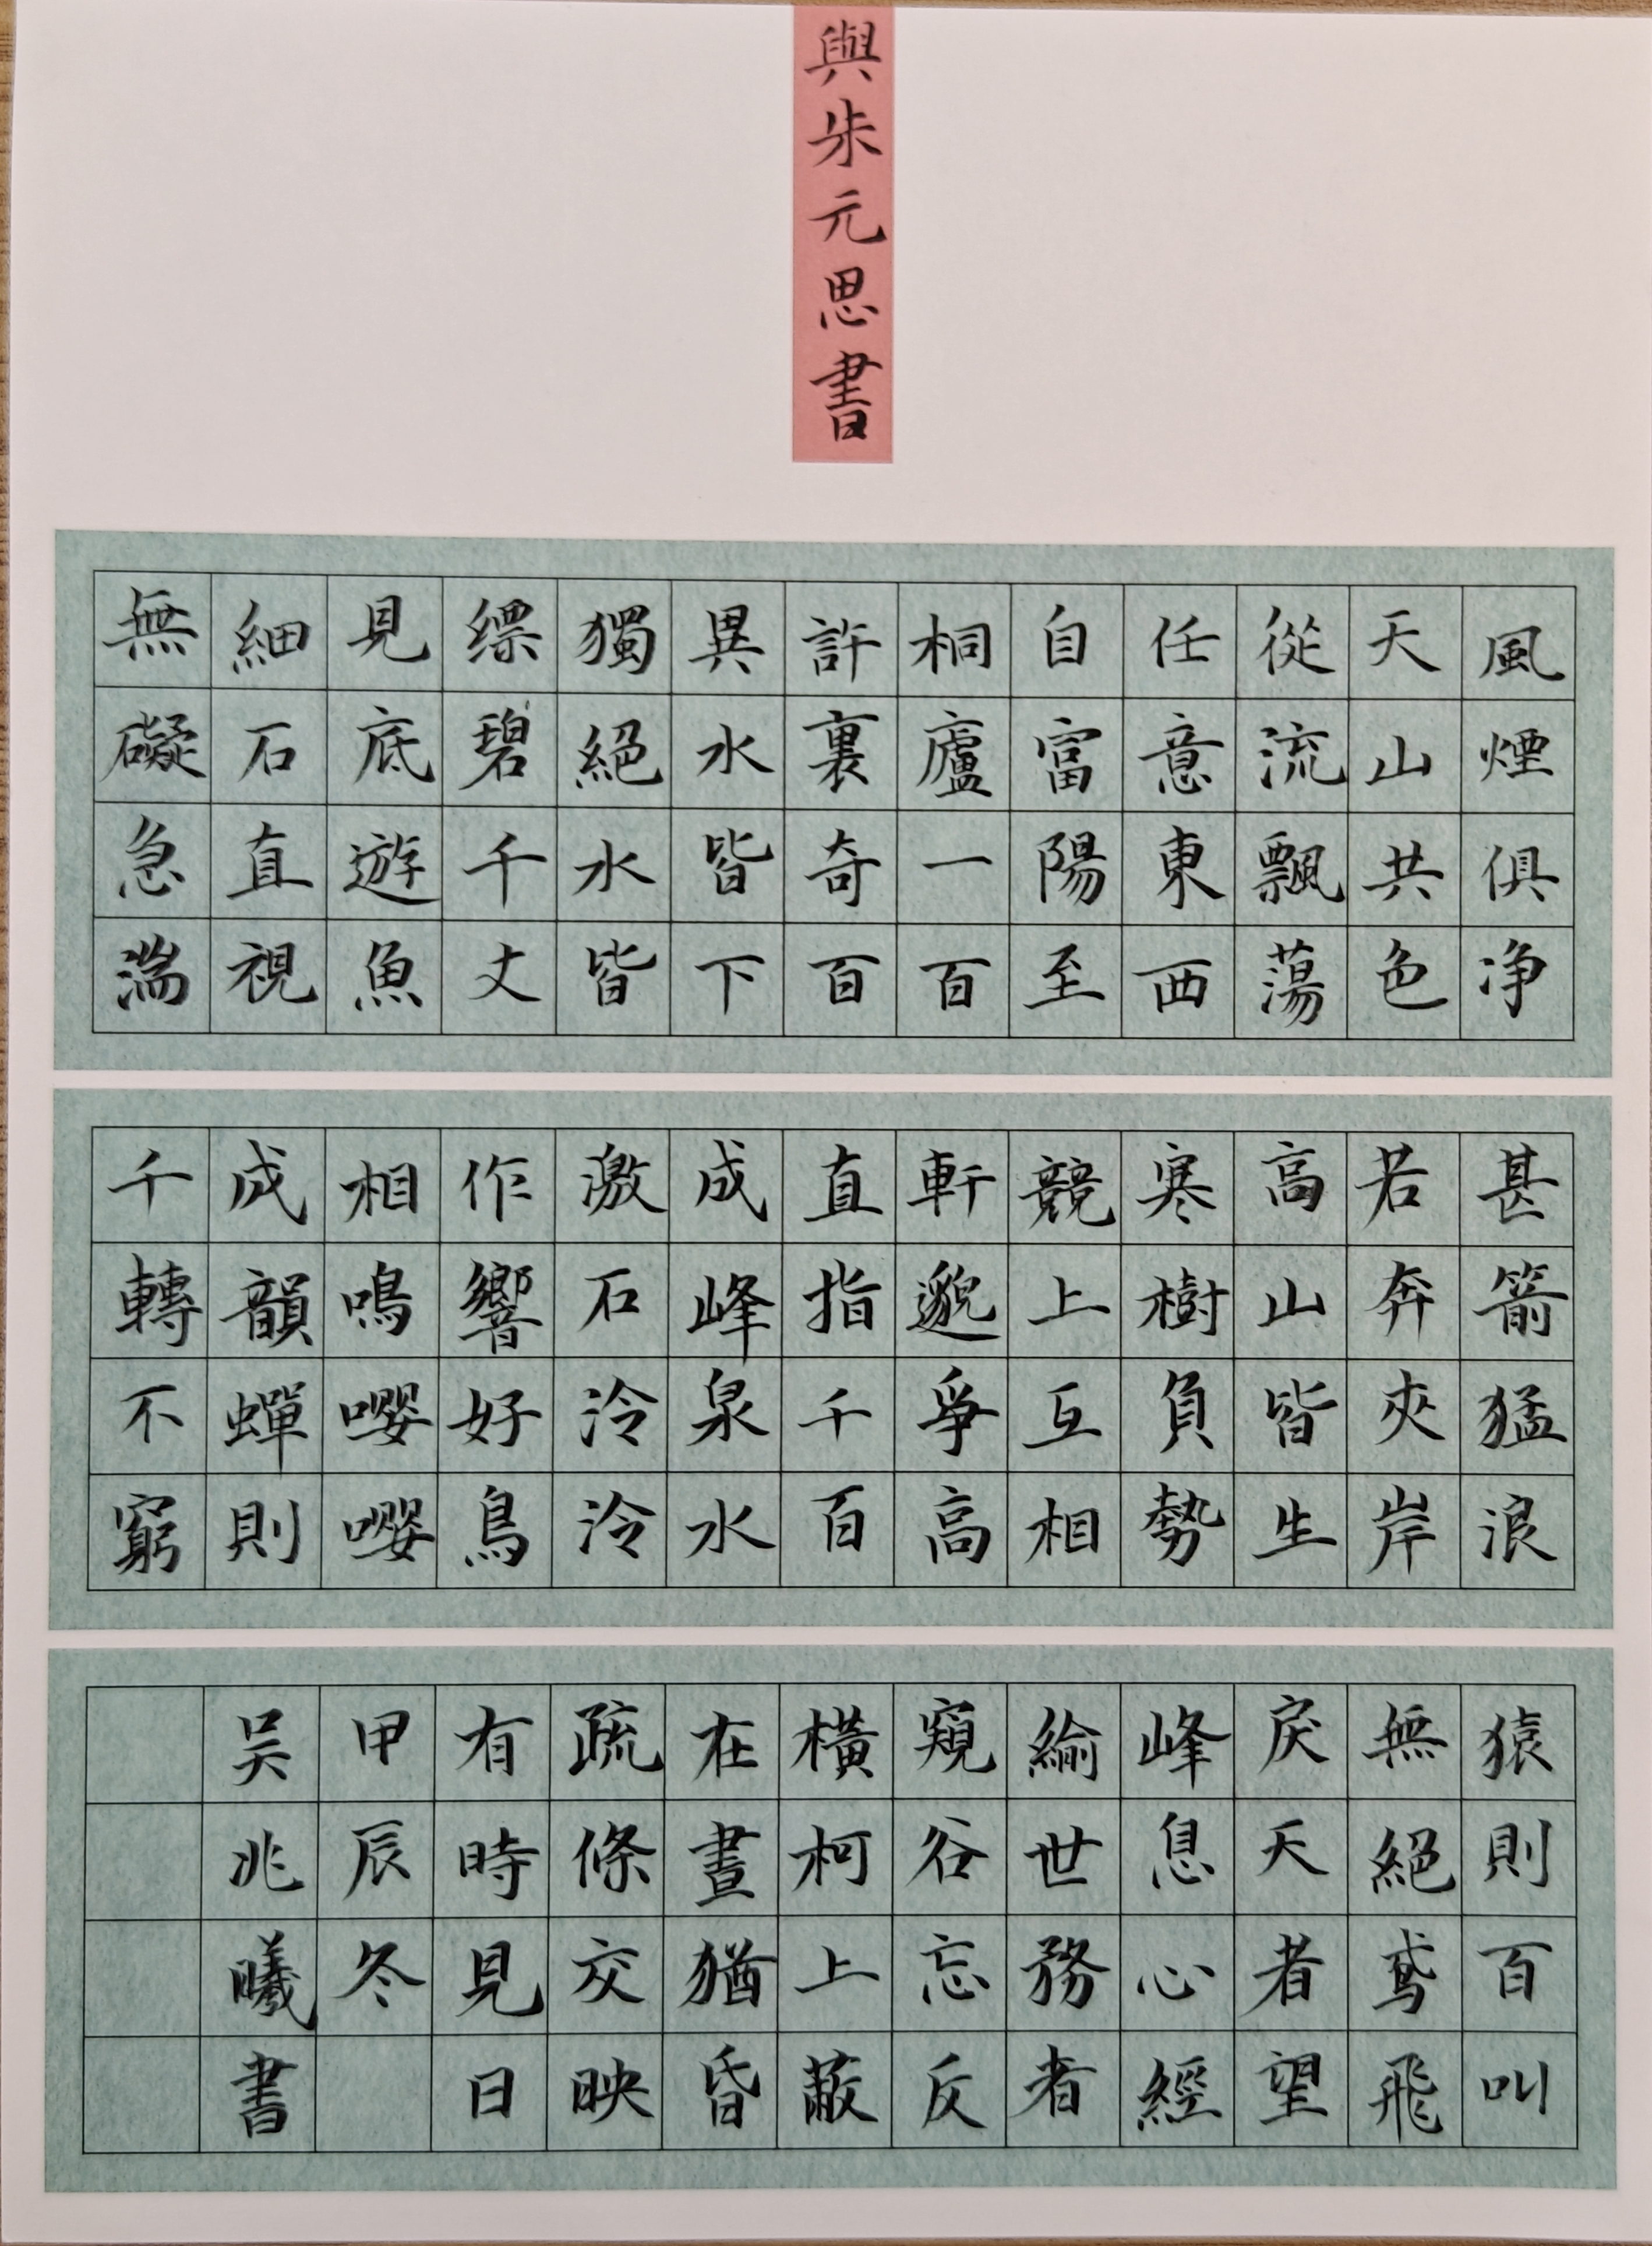 與朱元思書
風煙俱净
天山共色
從流飄蕩
任意東西
自富陽至
桐廬一百
許裏奇百
異水皆下
獨絕水皆
缥碧千丈
見底遊魚
細石直視
無礙急湍
甚箭猛浪
若奔夾岸
高山皆生
寒樹負勢
競上互相
軒邈爭高
直指千百
成峰泉水
激石泠泠
作響好鳥
相鳴嚶嚶
成韻蟬則
千轉不窮
猿則百叫
無絕鳶飛
戾天者望
峰息心經
綸世務者
窺谷忘反
橫柯上蔽
在晝猶昏
疏條交映
有時見日
甲辰冬
吴兆曦書